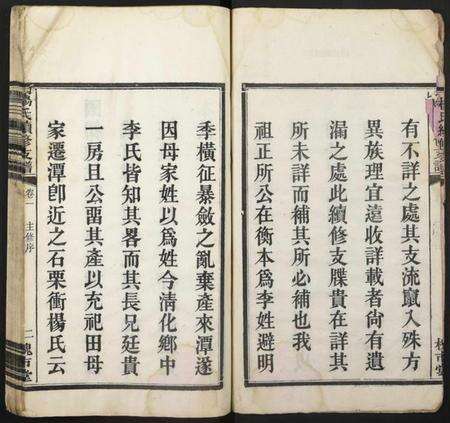 有不詳之處其支流竄入殊方
異族理宜遠收詳載者尙有遺
漏之處此續修支牒貴在詳其
所未詳而補其所必補也我
祖正所公在衡本爲李姓避明
季橫征暴斂之亂棄產來潭遂
因母家姓以爲姓今淸化鄉中
李氏皆知其畧而其長兄廷貴
一房且公畱其產以充祀田母
家遷潭卽近之石栗衝楊氏云
楊氏續修支譜
卷一
主修序
二